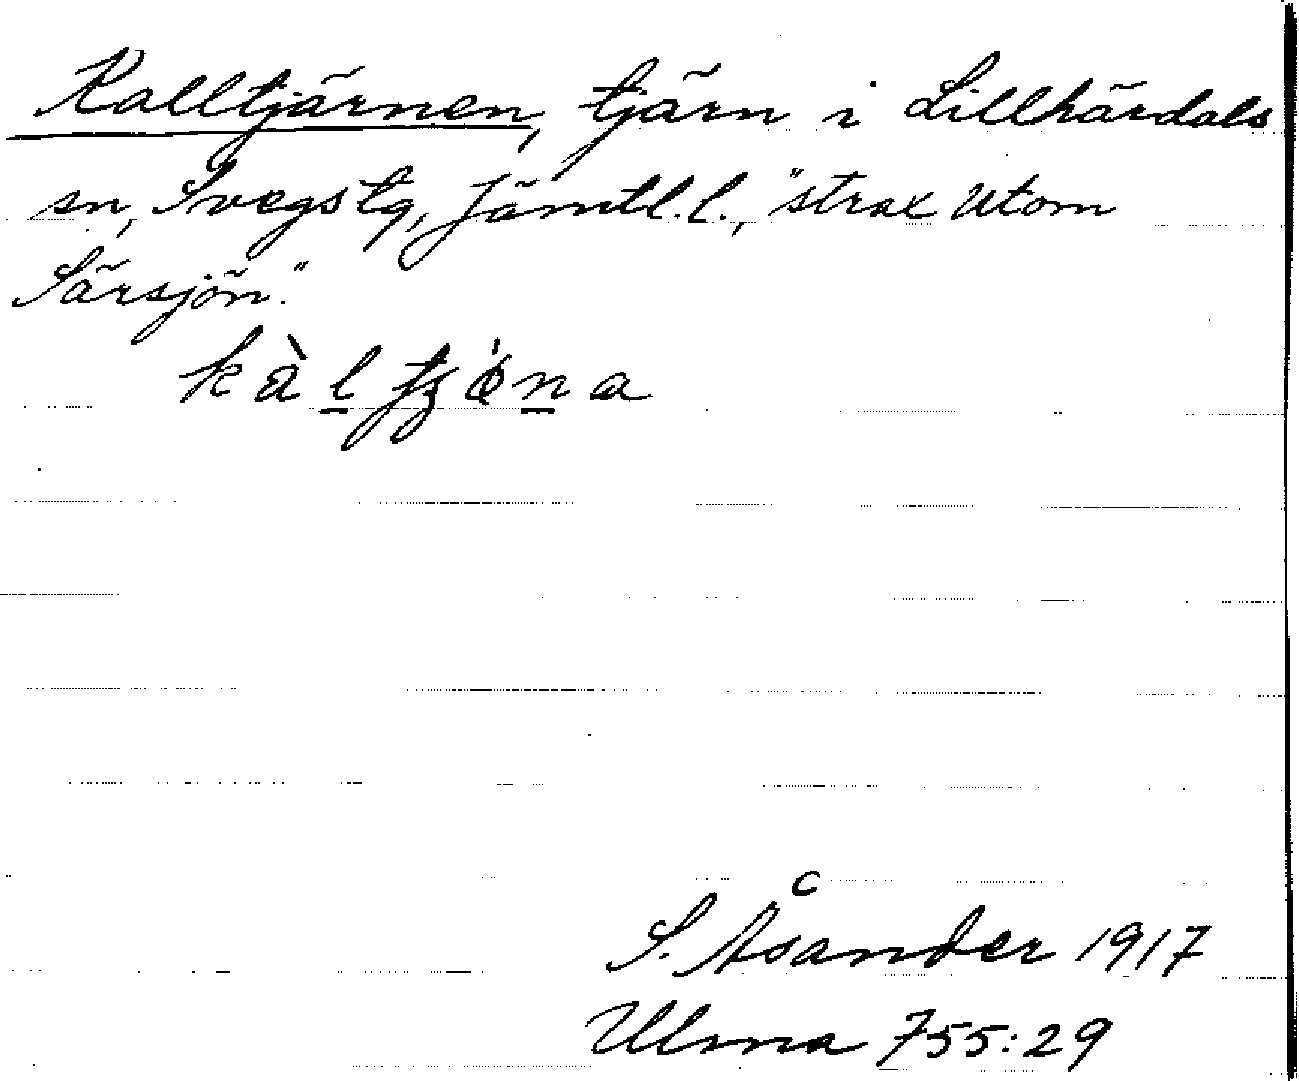 Kalltjärnen, tjärn i Lillhärdals
sn, Svegs tg, Jämtl. l., "strax utom
Särsjön."
S. Åsander 1917
Ulma 755:29